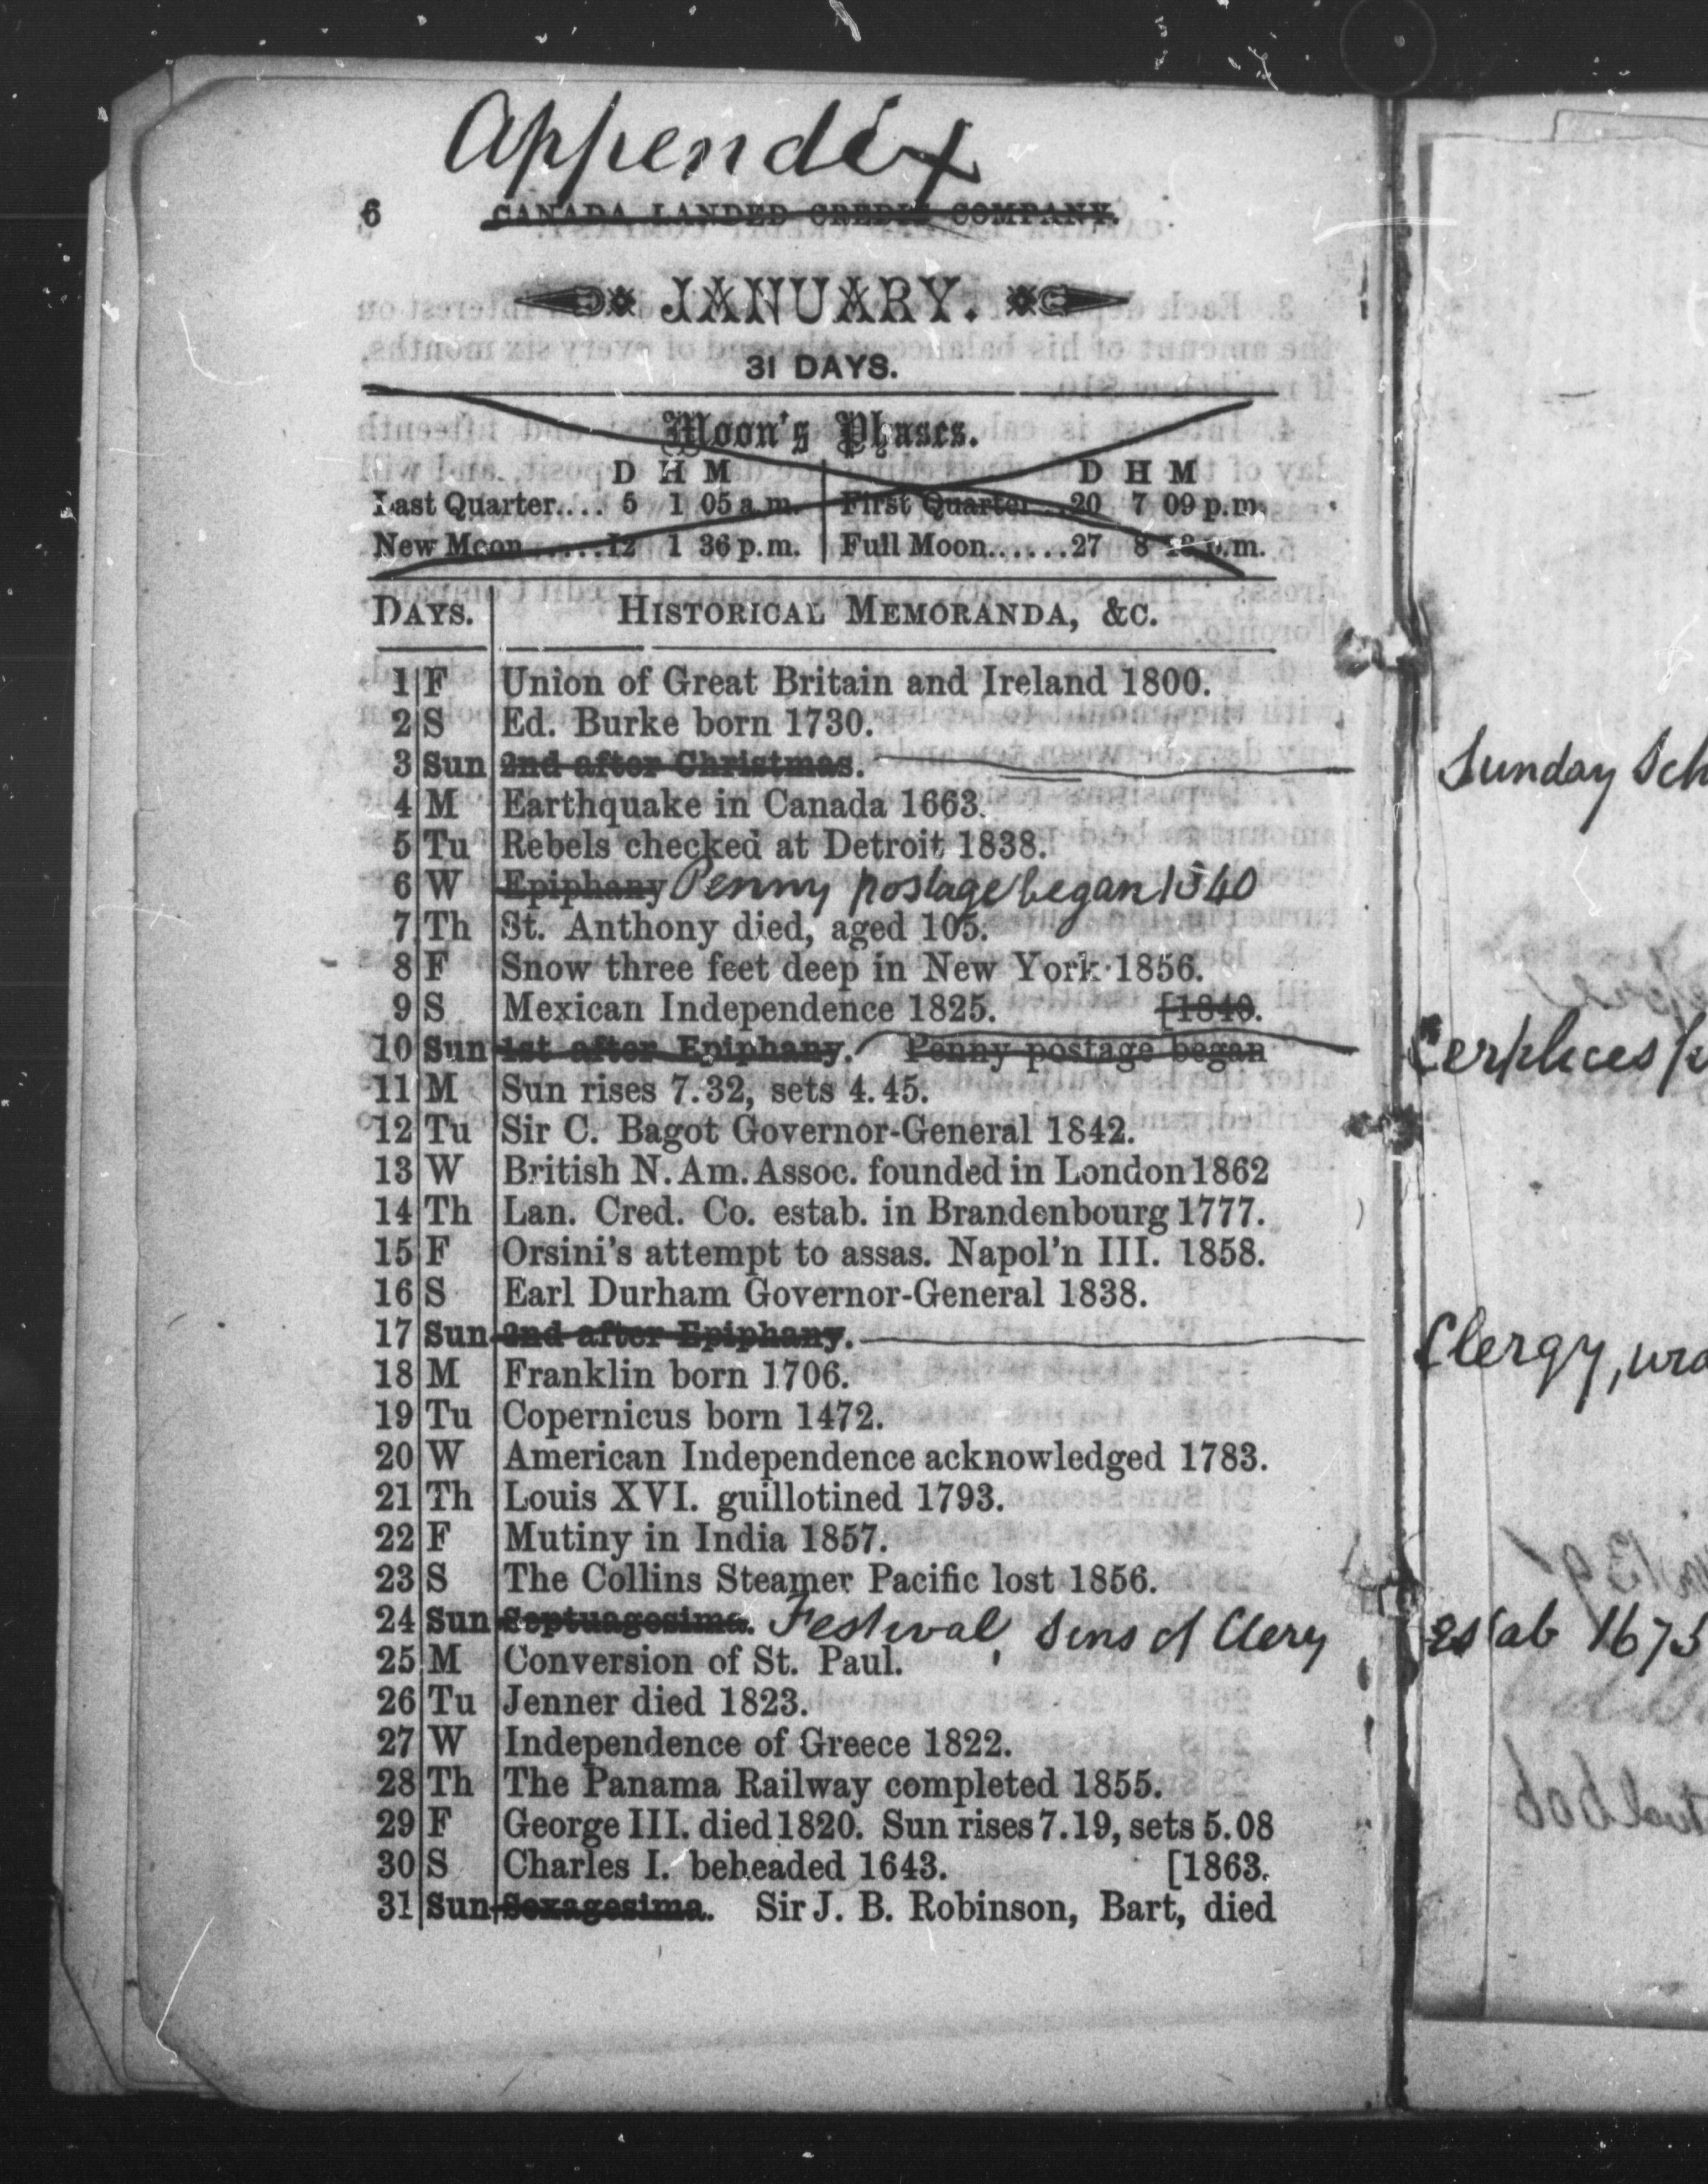 Appendix
6 CANADA LANDED CREDIT COMPANY.
JANUARY.
31 DAYS.
Moon's Phases.
D H M D H M
Last Quarter.... 5 1 05 a.m. First Quarter...20 7 09 p.m.
New Moon......12 1 36 p.m. Full Moon......27 8 p.m.
DAYS. HISTORICAL MEMORANDA, &C.
1 F Union of Great Britain and Ireland 1800.
2 S Ed. Burke born 1730.
3 Sun 2nd after Christmas. Sunday Sch
4 M Earthquake in Canada 1663.
5 Tu Rebels checked at Detroit 1838.
6 W Epiphany Penny postage began 1840
7 Th St. Anthony died, aged 105.
8 F Snow three feet deep in New York 1856.
9 S Mexican Independence 1825. [1840.
10 Sun 1st after Epiphany. Penny postage began
11 M Sun rises 7.32, sets 4.45.
12 Tu Sir C. Bagot Governor-General 1842.
13 W British N. Am. Assoc. founded in London 1862
14 Th Lan. Cred. Co. estab. in Brandenbourg 1777.
15 F Orsini's attempt to assas. Napol'n III. 1858.
16 S Earl Durham Governor-General 1838.
17 Sun 2nd after Epiphany. Clergy,
18 M Franklin born 1706.
19 Tu Copernicus born 1472.
20 W American Independence acknowledged 1783.
21 Th Louis XVI. guillotined 1793.
22 F Mutiny in India 1857.
23 S The Collins Steamer Pacific lost 1856.
24 Sun Septuagesima. Festival, Sons of Clery estab 1673
25 M Conversion of St. Paul.
26 Tu Jenner died 1823.
27 W Independence of Greece 1822.
28 Th The Panama Railway completed 1855.
29 F George III. died 1820. Sun rises 7.19, sets 5.08
30 S Charles I. beheaded 1643. [1863.
31 Sun Sexagesima. Sir J. B. Robinson, Bart, died